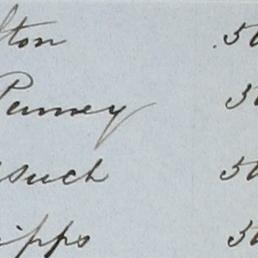 lton .50
Penney 50
such 50
ipps 50